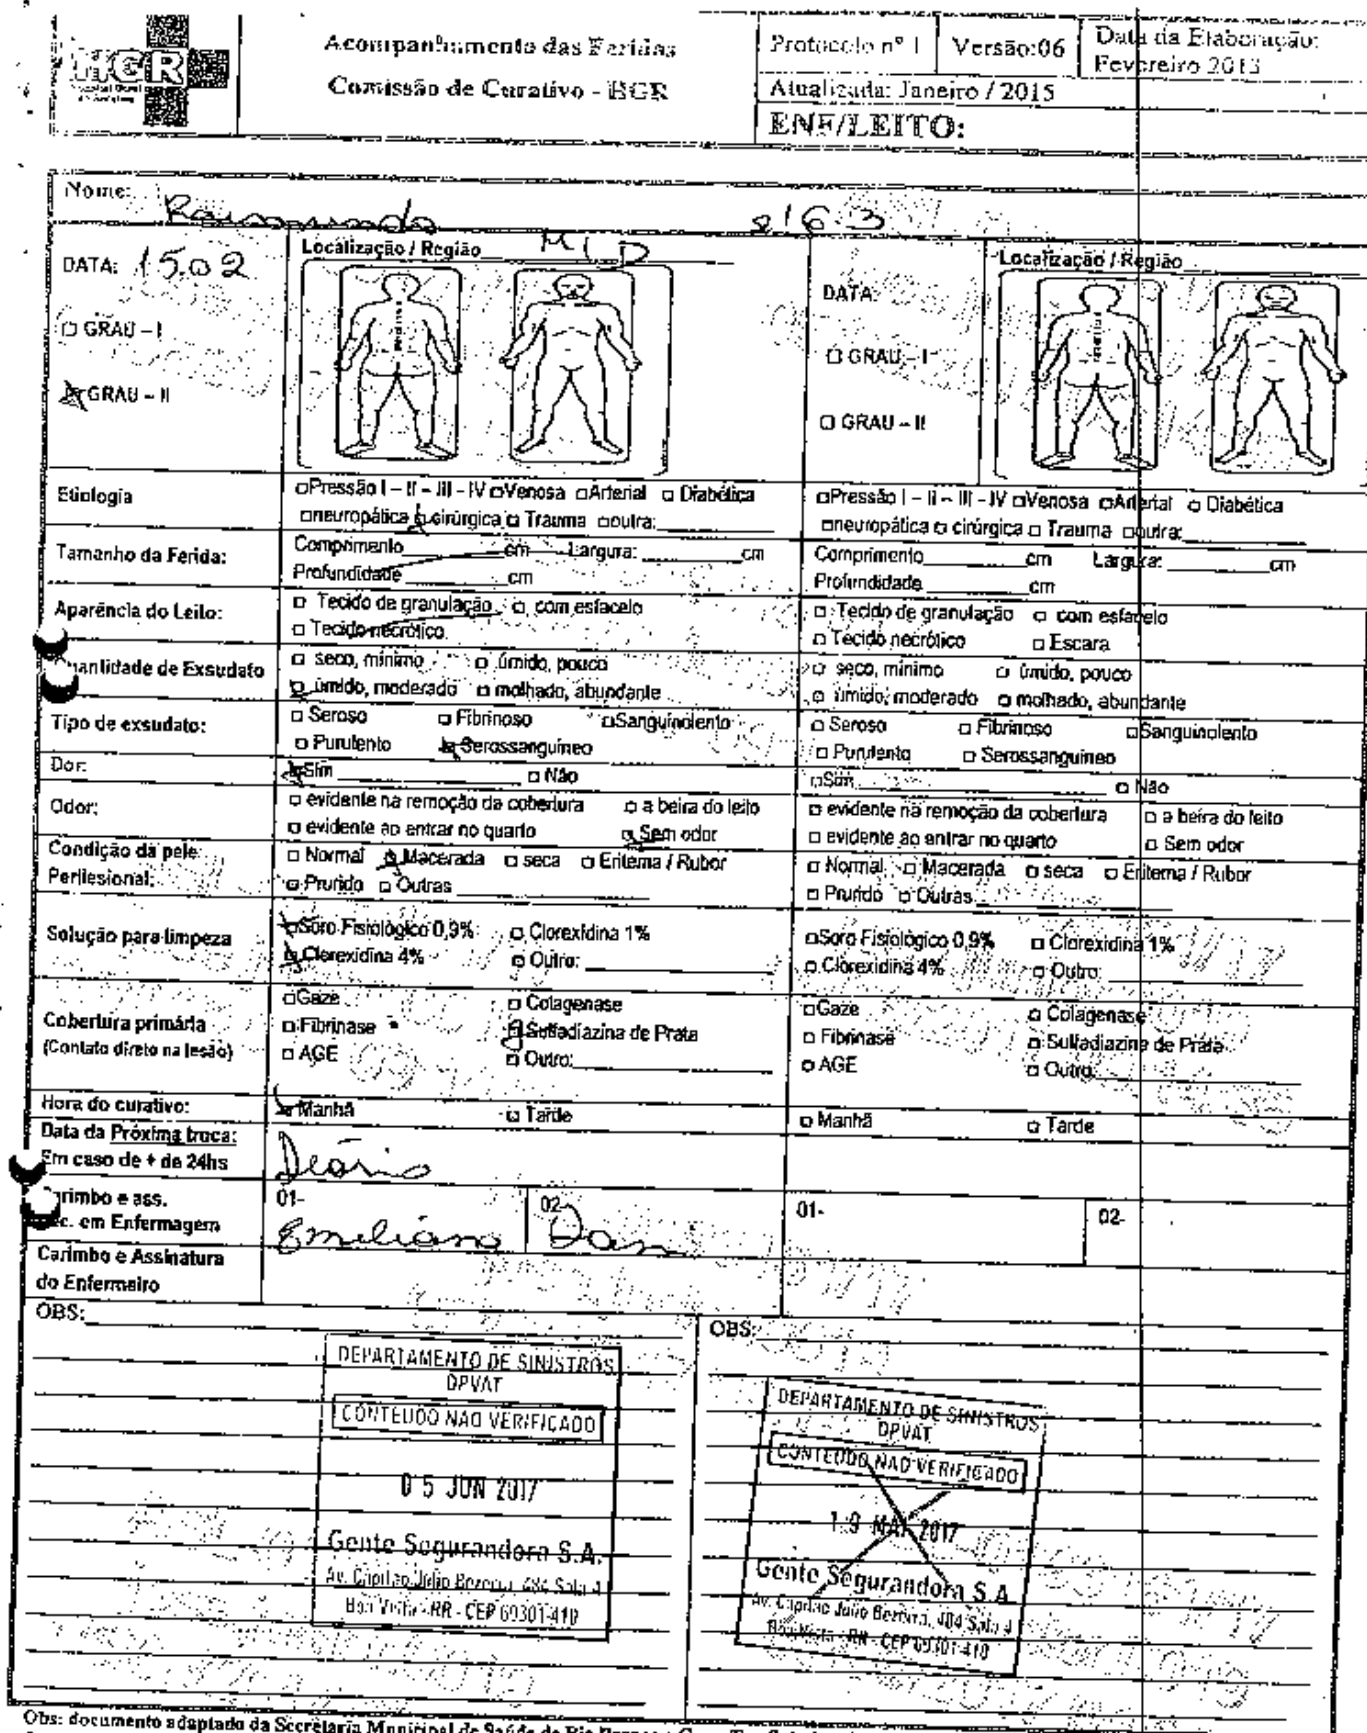 HGR
Acompanhamento das Feridas
Comissão de Curativo - HGR
Protocolo nº 1
Versão:06
Data da Elaboração:
Fevereiro 2013
Atualizada: Janeiro / 2015
ENF/LEITO:
Nome: Raimundo 216.3
DATA: 15.02
□ GRAU – I
□ GRAU – II
Localização / Região MID
DATA:
□ GRAU – I
□ GRAU – II
Localização / Região
Etiologia
□Pressão I – II – III - IV □Venosa □Arterial □ Diabética
□neuropática □ cirúrgica □ Trauma □outra:
□Pressão I – II – III - IV □Venosa □Arterial □ Diabética
□neuropática □ cirúrgica □ Trauma □outra:
Tamanho da Ferida:
Comprimento cm Largura: cm
Profundidade cm
Comprimento cm Largura: cm
Profundidade cm
Aparência do Leito:
□ Tecido de granulação □ com esfacelo
□ Tecido necrótico
□ Tecido de granulação □ com esfacelo
□ Tecido necrótico □ Escara
Quantidade de Exsudato
□ seco, mínimo □ úmido, pouco
□ úmido, moderado □ molhado, abundante
□ seco, mínimo □ úmido, pouco
□ úmido, moderado □ molhado, abundante
Tipo de exsudato:
□ Seroso □ Fibrinoso □Sanguinolento
□ Purulento □ Serossanguíneo
□ Seroso □ Fibrinoso □Sanguinolento
□ Purulento □ Serossanguíneo
Dor:
□Sim □ Não
□Sim □ Não
Odor:
□ evidente na remoção da cobertura □ a beira do leito
□ evidente ao entrar no quarto □ Sem odor
□ evidente na remoção da cobertura □ a beira do leito
□ evidente ao entrar no quarto □ Sem odor
Condição da pele
Perilesional:
□ Normal □ Macerada □ seca □ Eritema / Rubor
□ Prurido □ Outras
□ Normal □ Macerada □ seca □ Eritema / Rubor
□ Prurido □ Outras
Solução para limpeza
□Soro Fisiológico 0,9% □ Clorexidina 1%
□ Clorexidina 4% □ Outro:
□Soro Fisiológico 0,9% □ Clorexidina 1%
□ Clorexidina 4% □ Outro:
Cobertura primária
(Contato direto na lesão)
□Gaze □ Colagenase
□ Fibrinase □ Sulfadiazina de Prata
□ AGE □ Outro:
□Gaze □ Colagenase
□ Fibrinase □ Sulfadiazina de Prata
□ AGE □ Outro:
Hora do curativo:
□ Manhã □ Tarde
□ Manhã □ Tarde
Data da Próxima troca:
Em caso de + de 24hs
Diário
Carimbo e ass.
Téc. em Enfermagem
01- Emiliana
02- Dan
01-
02-
Carimbo e Assinatura
do Enfermeiro
OBS:
OBS:
DEPARTAMENTO DE SINISTROS
DPVAT
CONTEUDO NAO VERIFICADO
05 JUN 2017
Gente Segurandora S.A.
Av. Capitao Julio Bezerra, 484 Sala 4
Boa Vista - RR - CEP 69301-410
DEPARTAMENTO DE SINISTROS
DPVAT
CONTEUDO NAO VERIFICADO
19 MAI 2017
Gente Segurandora S.A
Av. Capitao Julio Bezerra, 484 Sala 4
Boa Vista - RR - CEP 69301-410
Obs: documento adaptado da Secretaria Municipal de Saúde de